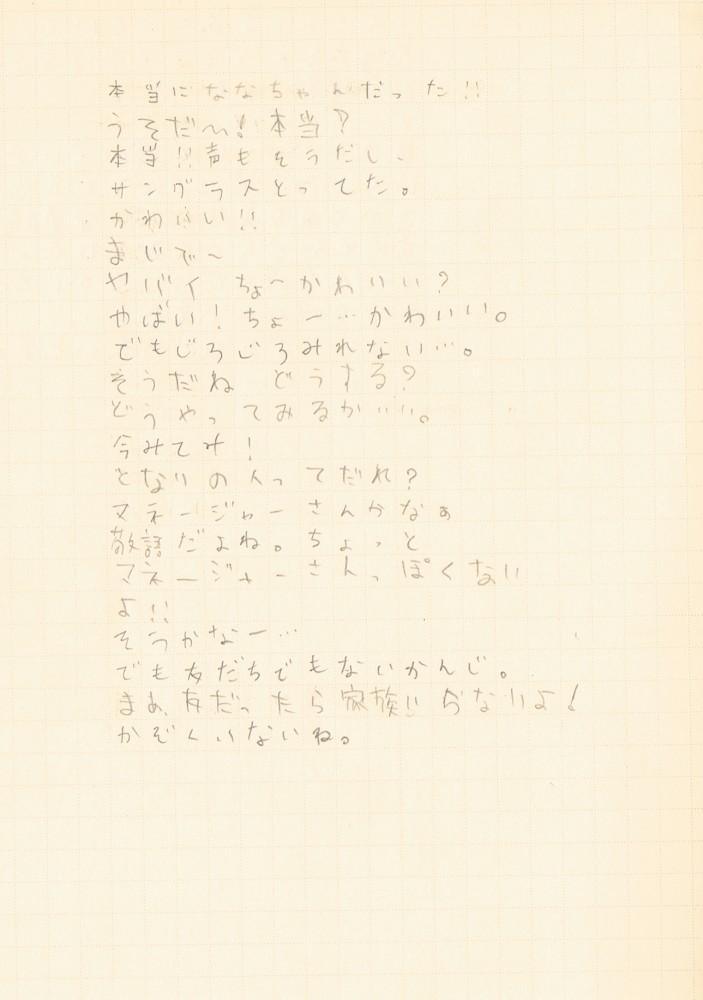 本当にななちゃんだった!!
うそだ〜!本当?
本当!!声もそうだし、
サングラスとってた。
かわいい!!
まじで〜
ヤバイ ちょーかわいい?
やばい!ちょー…かわいい。
でもじろじろみれない…。
そうだね どうする?
どうやってみるかいい。
今みてみ!
となりの人ってだれ?
マネージャーさんかなぁ
敬語だよね。ちょっと
マネージャーさんっぽくない
よ!!
そうかなー…
でも友だちでもないかんじ。
まぁ、友だったら家族!!
かぞくいないね。